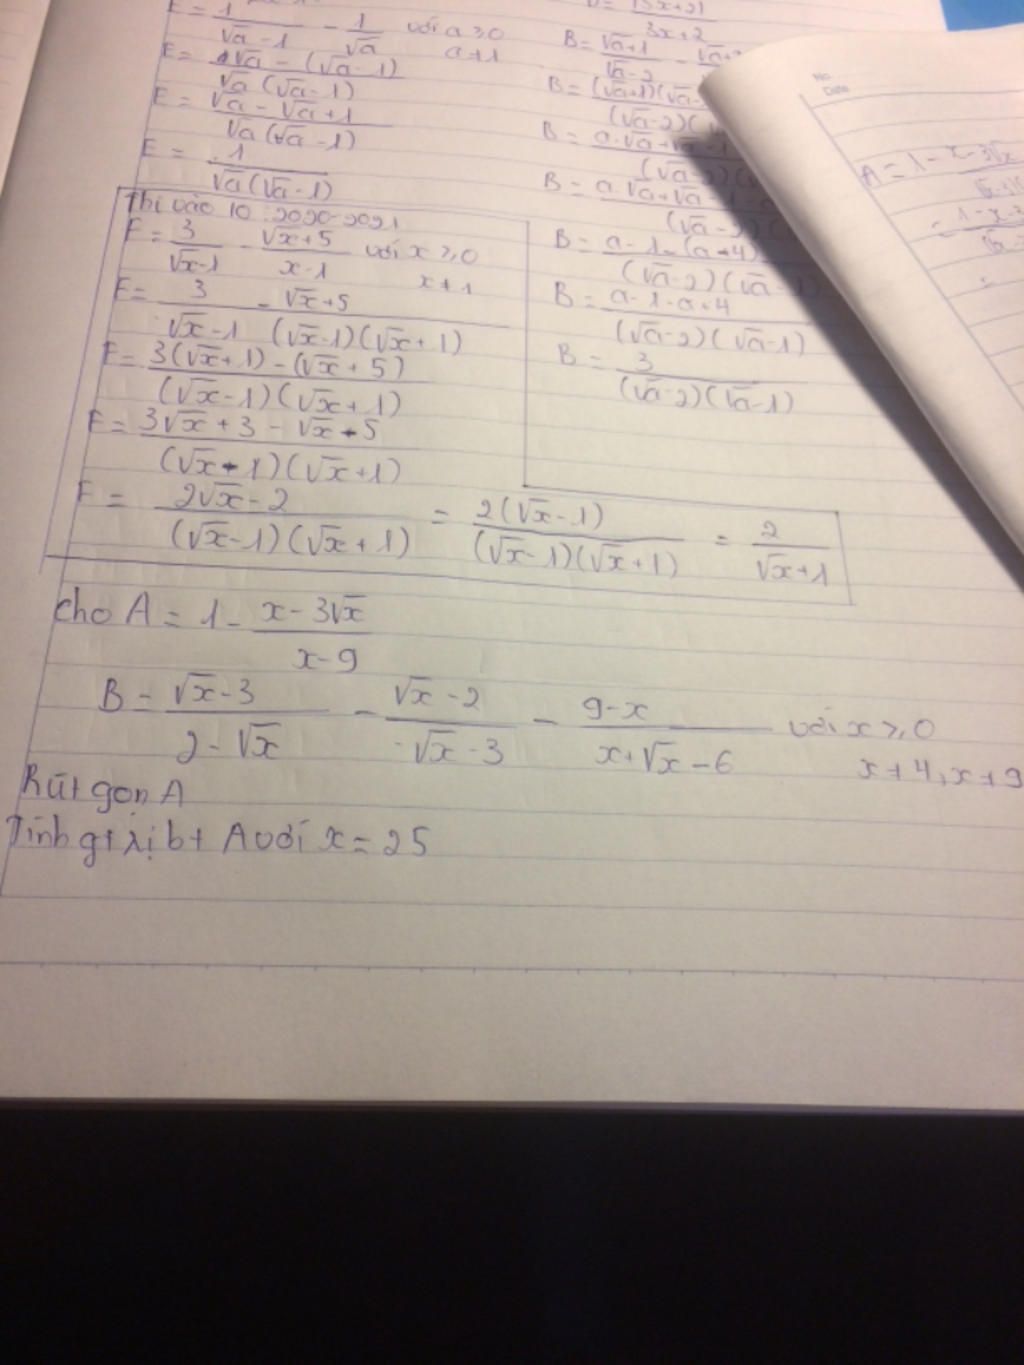 E = 1/(√a - 1) - 1/√a với a ≥ 0
a ≠ 1
E = 1√a - (√a - 1) / √a(√a - 1)
E = √a - √a + 1 / √a(√a - 1)
E = 1 / √a(√a - 1)
3x+2
B = √a+1 / √a-2
B = (√a+1)(√a-
(√a-2)(
B = a-1-(a-4) / (√a-2)(√a-1)
B = a-1-a+4 / (√a-2)(√a-1)
B = 3 / (√a-2)(√a-1)
Thi vào 10 2020-2021
F = 3/(√x-1) - (√x+5)/(x-1) với x ≥ 0
x ≠ 1
F = 3/(√x-1) - (√x+5)/(√x-1)(√x+1)
F = 3(√x+1) - (√x+5) / (√x-1)(√x+1)
F = 3√x+3 - √x-5 / (√x-1)(√x+1)
F = 2√x-2 / (√x-1)(√x+1) = 2(√x-1) / (√x-1)(√x+1) = 2/(√x+1)
cho A = 1 - (x-3√x)/(x-9)
B = (√x-3)/(2-√x) - (√x-2)/(-√x-3) - (9-x)/(x+√x-6) với x ≥ 0
x ≠ 4, x ≠ 9
Rút gọn A
Tính gt trị bt A với x = 25
No.
Date
A = 1 - x-3√x
= 1-x-3